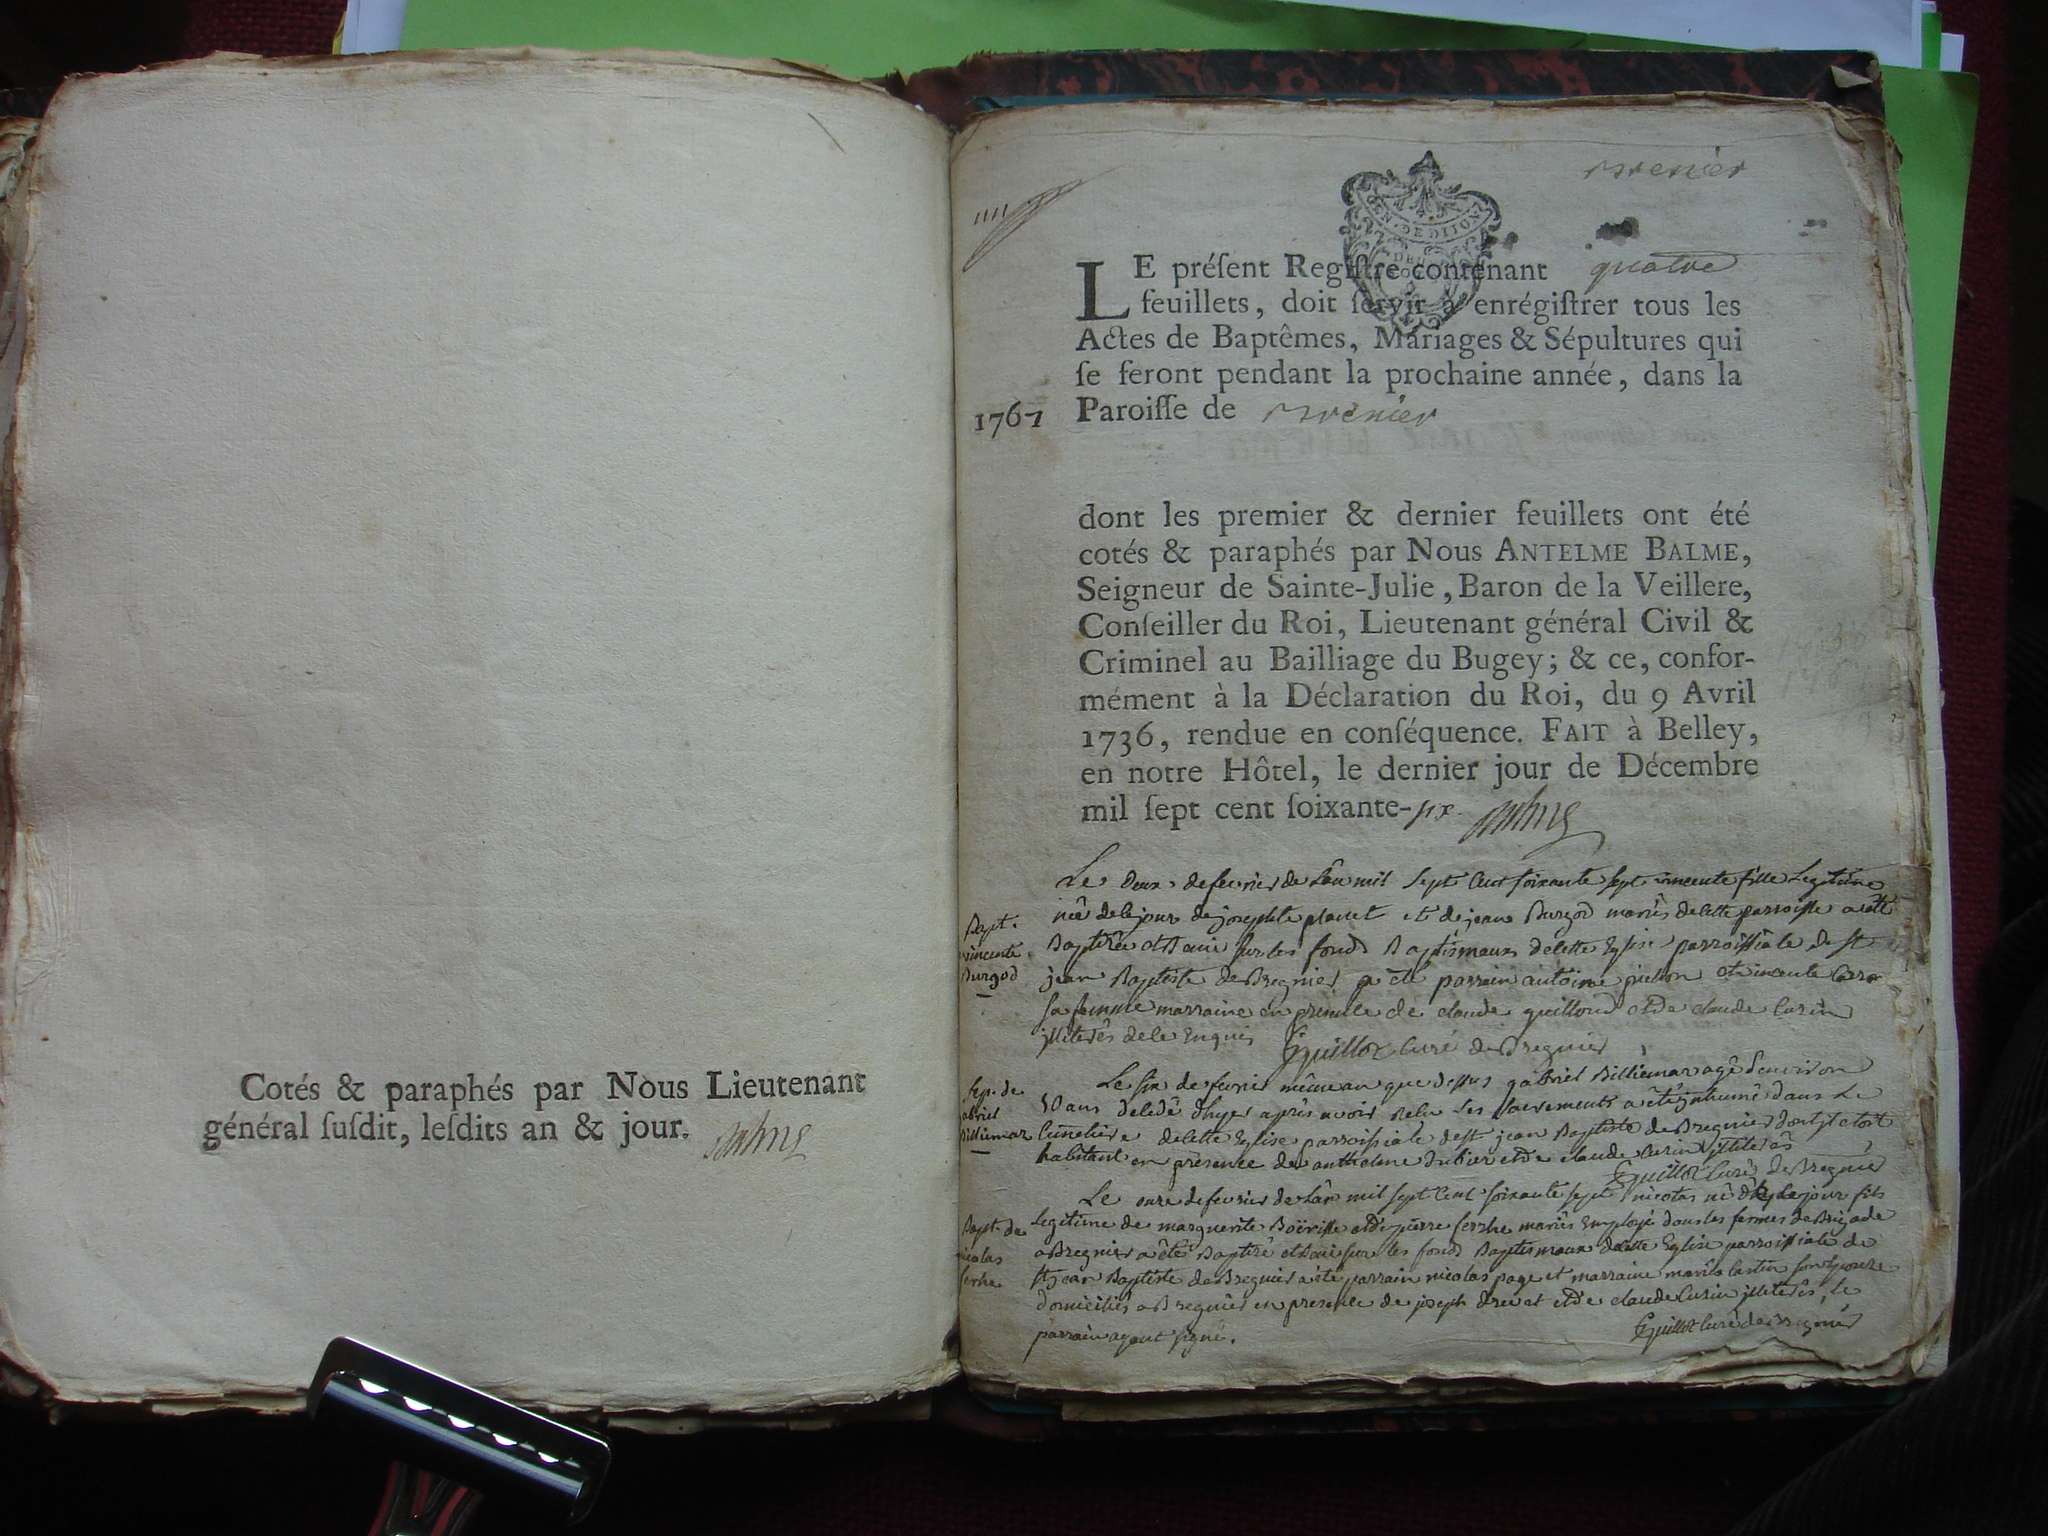 Cotés & paraphés par Nous Lieutenant
général ſuſdit, leſdits an & jour. Balme
Brenier
GEN. DE DIJON
quatre
LE préſent Regiſtre contenant
feuillets, doit ſervir à enrégiſtrer tous les
Actes de Baptêmes, Mariages & Sépultures qui
ſe feront pendant la prochaine année, dans la
1767 Paroiſſe de Brenier
dont les premier & dernier feuillets ont été
cotés & paraphés par Nous ANTELME BALME,
Seigneur de Sainte-Julie, Baron de la Veillere,
Conſeiller du Roi, Lieutenant général Civil &
Criminel au Bailliage du Bugey; & ce, confor-
mément à la Déclaration du Roi, du 9 Avril
1736, rendue en conſéquence. FAIT à Belley,
en notre Hôtel, le dernier jour de Décembre
mil ſept cent ſoixante-six. Balme
Bapt.
vincente
Burgod
Le deux de fevrier de l'an mil sept cent soixante sept vincente fille legitime
née de le jour de josephte et de jean Burgod mariés de cette parroisse a été
Baptisée sur les fonds Baptismaux de cette Eglise parroissiale de st
jean Baptiste de Bregnier a été parrain antoine et vincente
sa femme marraine en presence de claude guilloud et de claude Curin
illiterés de ce Enquis Guillot Curé de Bregnier
Sep. de
gabriel
Billiemaz
Le six de fevrier même an que dessus gabriel Billiemaz agé d'environ
50 ans decedé d'hyer après avoir receu les sacrements a été inhumé dans le
Cimetiere de cette Eglise parroissiale de st jean Baptiste de Bregnier dont il etoit
habitant en presence de anthelme et de claude Curin illiterés
Guillot Curé de Bregnier
Bapt. de
nicolas
ferrhe
Le onze de fevrier de l'an mil sept cent soixante sept nicolas né le jour fils
legitime de marguerite et de pierre ferrhe mariés Employé dans les fermes de Brigade
a Bregnier a été Baptisé sur les fonds Baptismaux de cette Eglise parroissiale de
st jean Baptiste de Bregnier a été parrain nicolas page et marraine maria son Epouse
domiciliés a Bregnier en presence de joseph et de claude Curin illiterés, le
parrain ayant signé. Guillot Curé de Bregnier